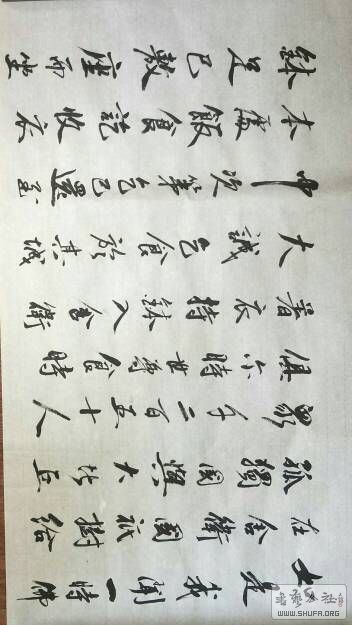 如是我聞一時佛
在舍衛國祇樹給
孤獨園與大比丘
眾千二百五十人
俱尒時世尊食時
著衣持鉢入舍衛
大城乞食於其城
中次第乞已還至
本處飯食訖收衣
鉢足已敷座而坐
WWW.SHUFA.ORG